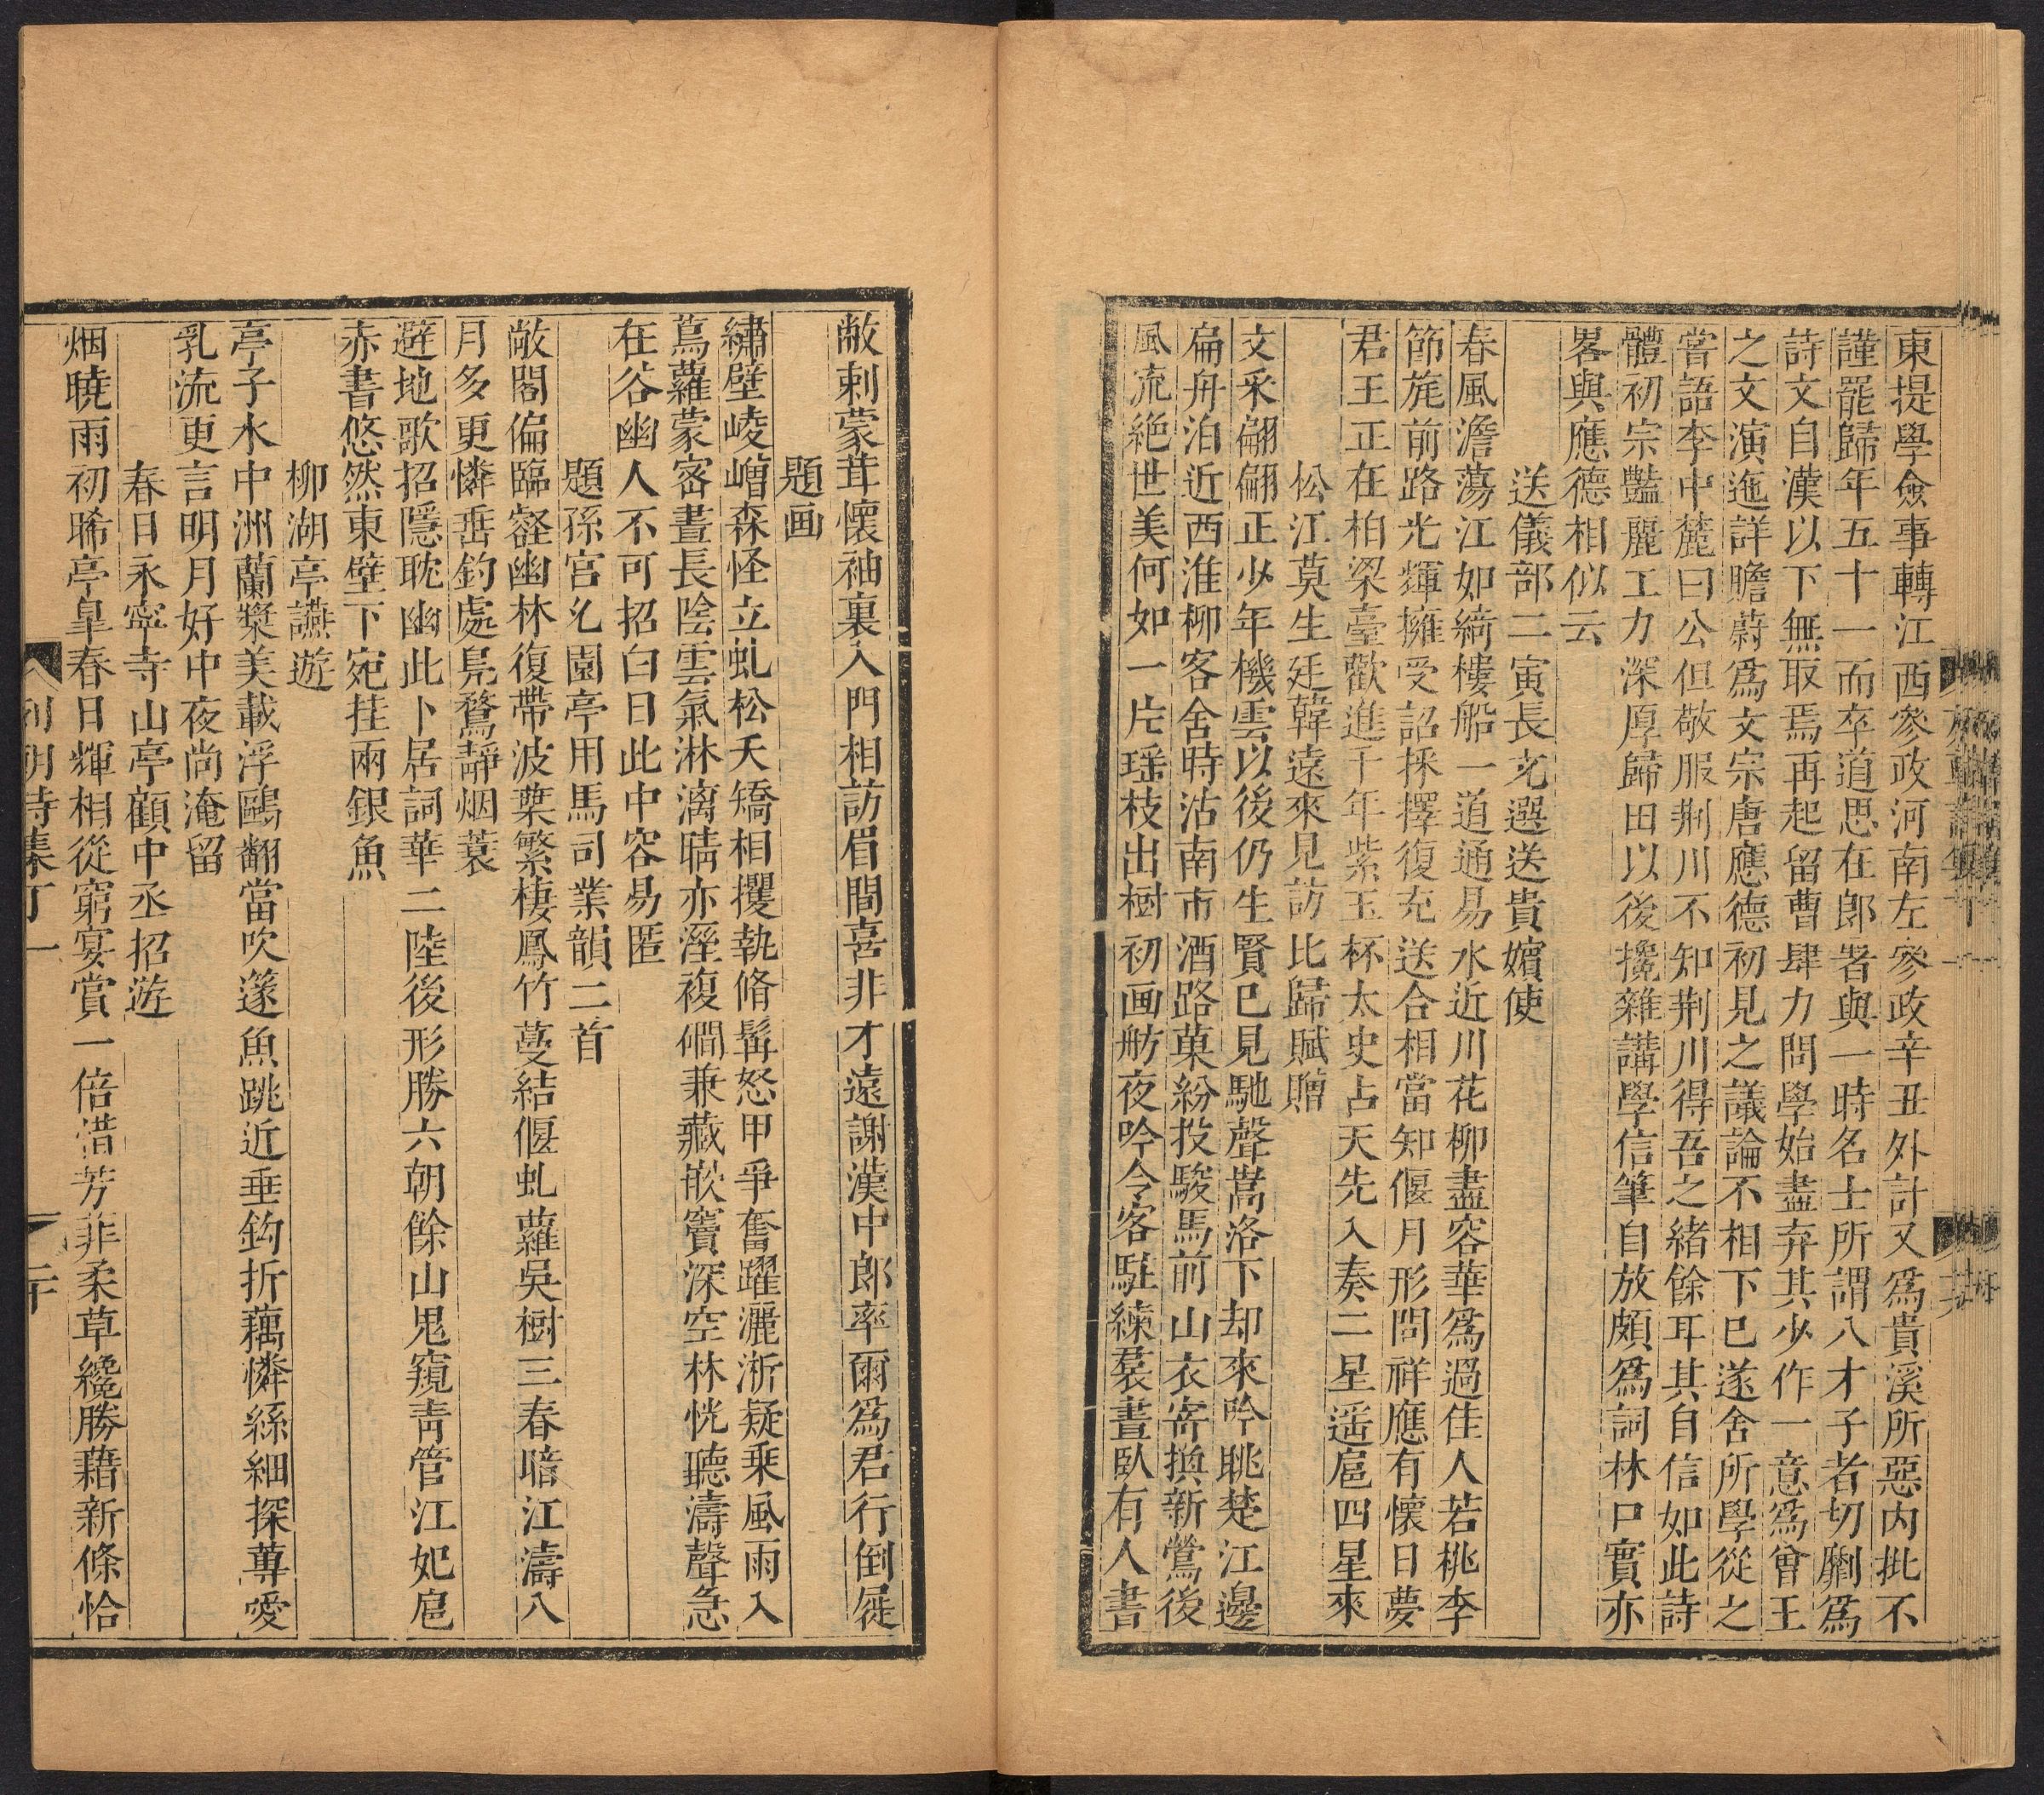 東提學僉事轉江西參政河南左參政辛丑外計又爲貴溪所惡内批不
謹罷歸年五十一而卒道思在郎署與一時名士所謂八才子者切劘爲
詩文自漢以下無取焉再起留曹肆力問學始盡弃其少作一意爲曾王
之文演迤詳贍蔚爲文宗唐應德初見之議論不相下已遂舍所學從之
嘗語李中麓曰公但敬服荆川不知荆川得吾之緒餘耳其自信如此詩
體初宗豔麗工力深厚歸田以後攙雜講學信筆自放頗爲詞林口實亦
畧與應德相似云
送儀部二寅長充選送貴嬪使
春風澹蕩江如綺樓船一道通易水近川花柳盡容華爲過佳人若桃李
節旄前路光輝擁受詔採擇復充送合相當知偃月形問祥應有懷日夢
君王正在柏梁臺歡進千年紫玉杯太史占天先入奏二星遥扈四星來
松江莫生廷韓遠來見訪比歸賦贈
文采翩翩正少年機雲以後仍生賢已見馳聲嵩洛下却來吟眺楚江邊
扁舟泊近西淮柳客舍時沽南市酒路菓紛投駿馬前山衣寄換新鶯後
風流絶世美何如一片瑶枝出樹初画舫夜吟今客駐練裠晝臥有人書
敝刺蒙茸懷袖裏入門相訪眉間喜非才遠謝漢中郎率爾爲君行倒屣
題画
繡壁崚嶒森怪立虬松夭矯相攫執脩髯怒甲爭奮躍灑淅疑乗風雨入
蔦蘿蒙密晝長陰雲氣淋漓晴亦溼複磵兼藏嵌竇深空林恍聽濤聲急
在谷幽人不可招白日此中容易匿
題孫宫允園亭用馬司業韻二首
敞閣偏臨壑幽林復帶波葉繁棲鳳竹蔓結偃虬蘿吳樹三春暗江濤八
月多更憐垂釣處鳬鶩靜烟蓑
避地歌招隱耽幽此卜居詞華二陸後形勝六朝餘山鬼窺靑管江妃扈
赤書悠然東壁下宛挂兩銀魚
柳湖亭讌遊
亭子水中洲蘭槳美載浮鷗翻當吹篴魚跳近垂鈎折藕憐絲細探蓴愛
乳流更言明月好中夜尚淹留
春日永寧寺山亭顧中丞招遊
烟曉雨初晞亭皐春日輝相從窮宴賞一倍惜芳菲柔草纔勝藉新條恰
列朝詩集丁一